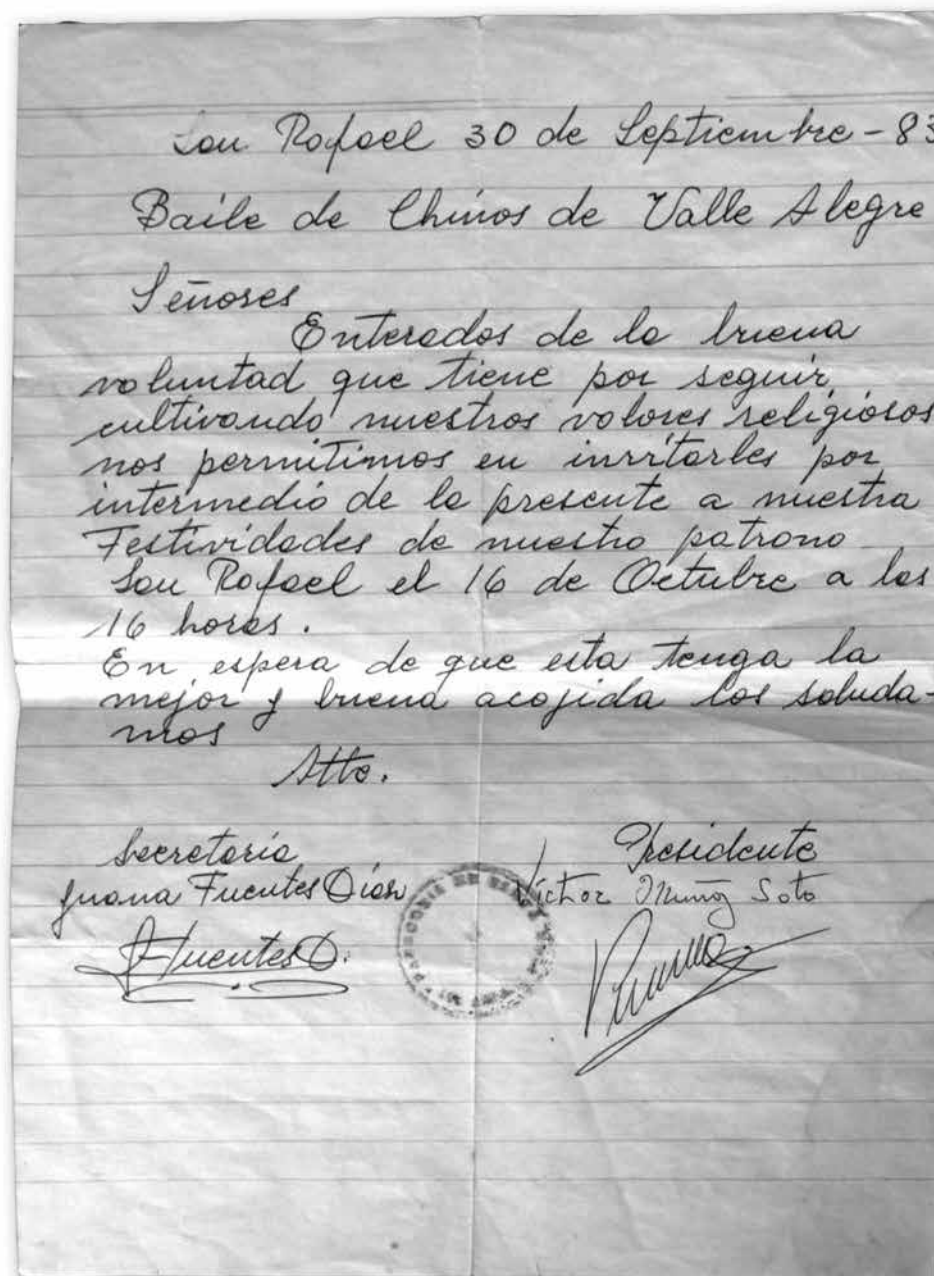 San Rafael 30 de Septiembre - 83
Baile de Chinos de Valle Alegre
Señores
Enterados de la buena
voluntad que tiene por seguir
cultivando nuestros valores religiosos
nos permitimos en invitarles por
intermedio de la presente a nuestra
Festividades de nuestro patrono
San Rafael el 16 de Octubre a las
16 horas.
En espera de que esta tenga la
mejor y buena acojida los saluda-
mos
Atte.
Secretaria Presidente
Juana Fuentes Díaz Víctor Muñoz Soto
Fuentes D.